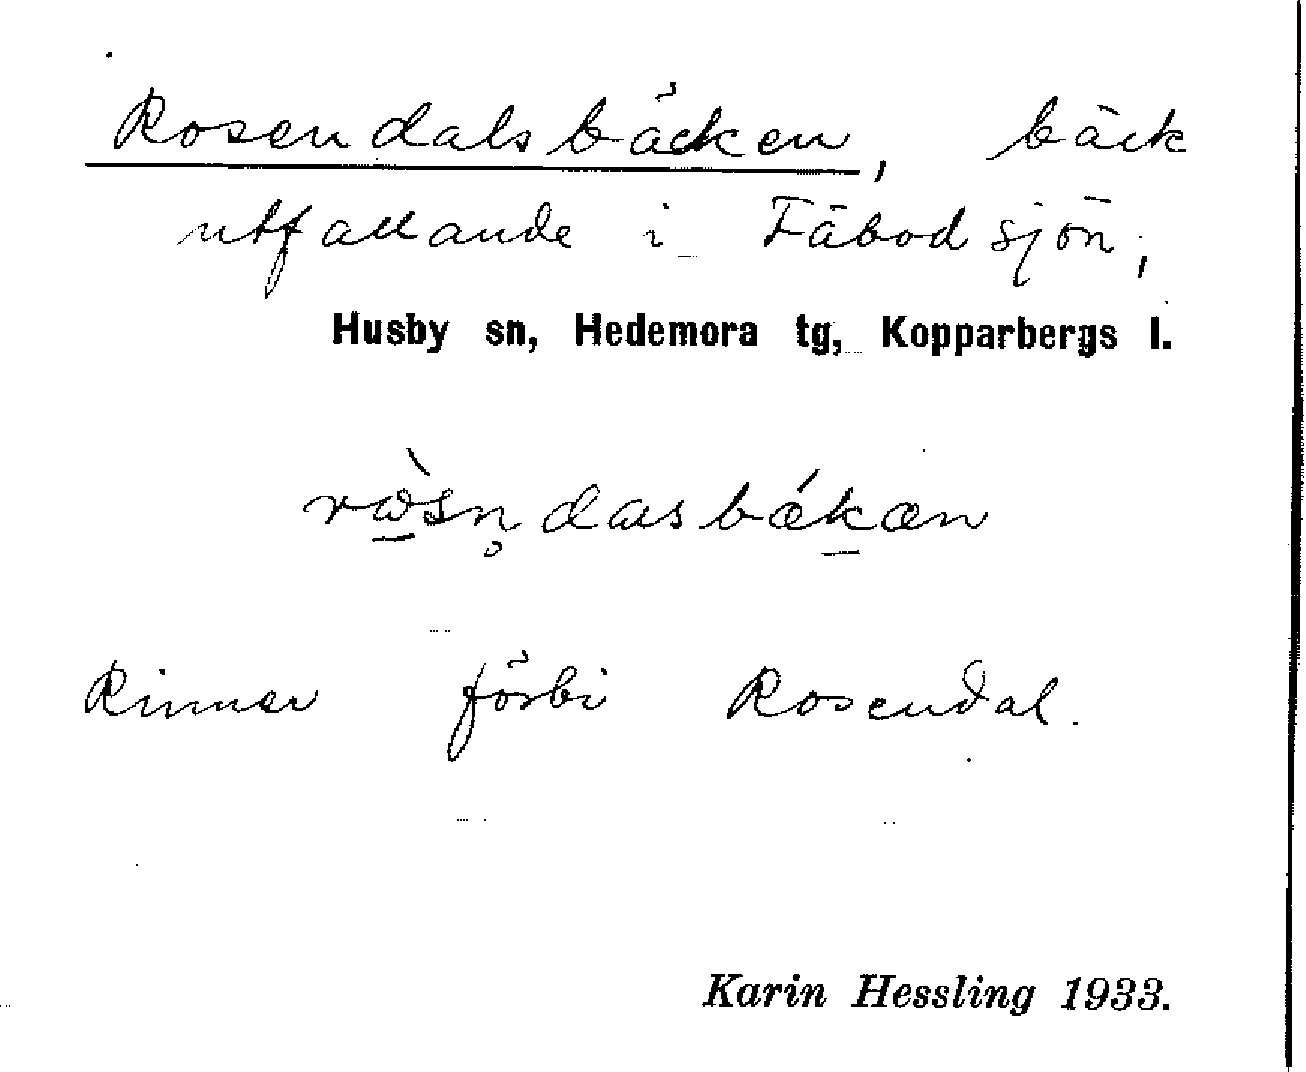 Rosendalsbäcken, bäck
utfallande i Fäbodsjön,
Husby sn, Hedemora tg, Kopparbergs l.
rὼ̲sn̥dasbǽk̲æn
Rinner förbi Rosendal.
Karin Hessling 1933.